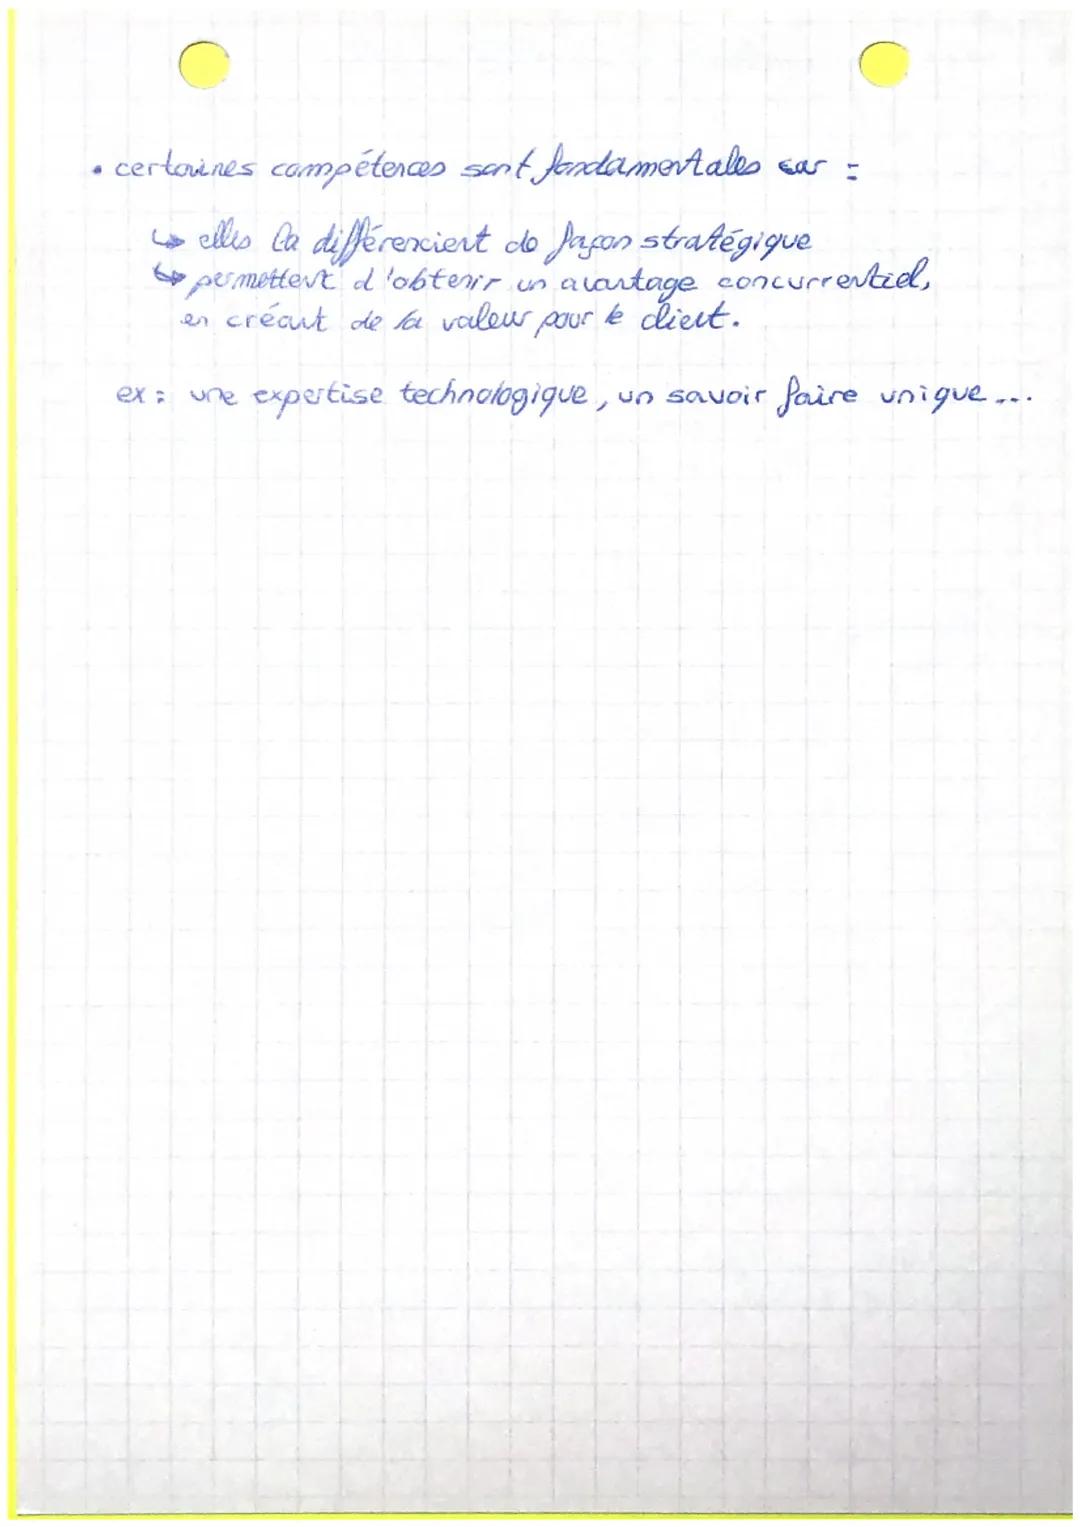 • certaines compétences sont fondamentales car :
↳ elles la différencient de façon stratégique
↳ permettent d'obtenir un avantage concurrentiel,
en créant de la valeur pour le client.
ex : une expertise technologique, un savoir faire unique...